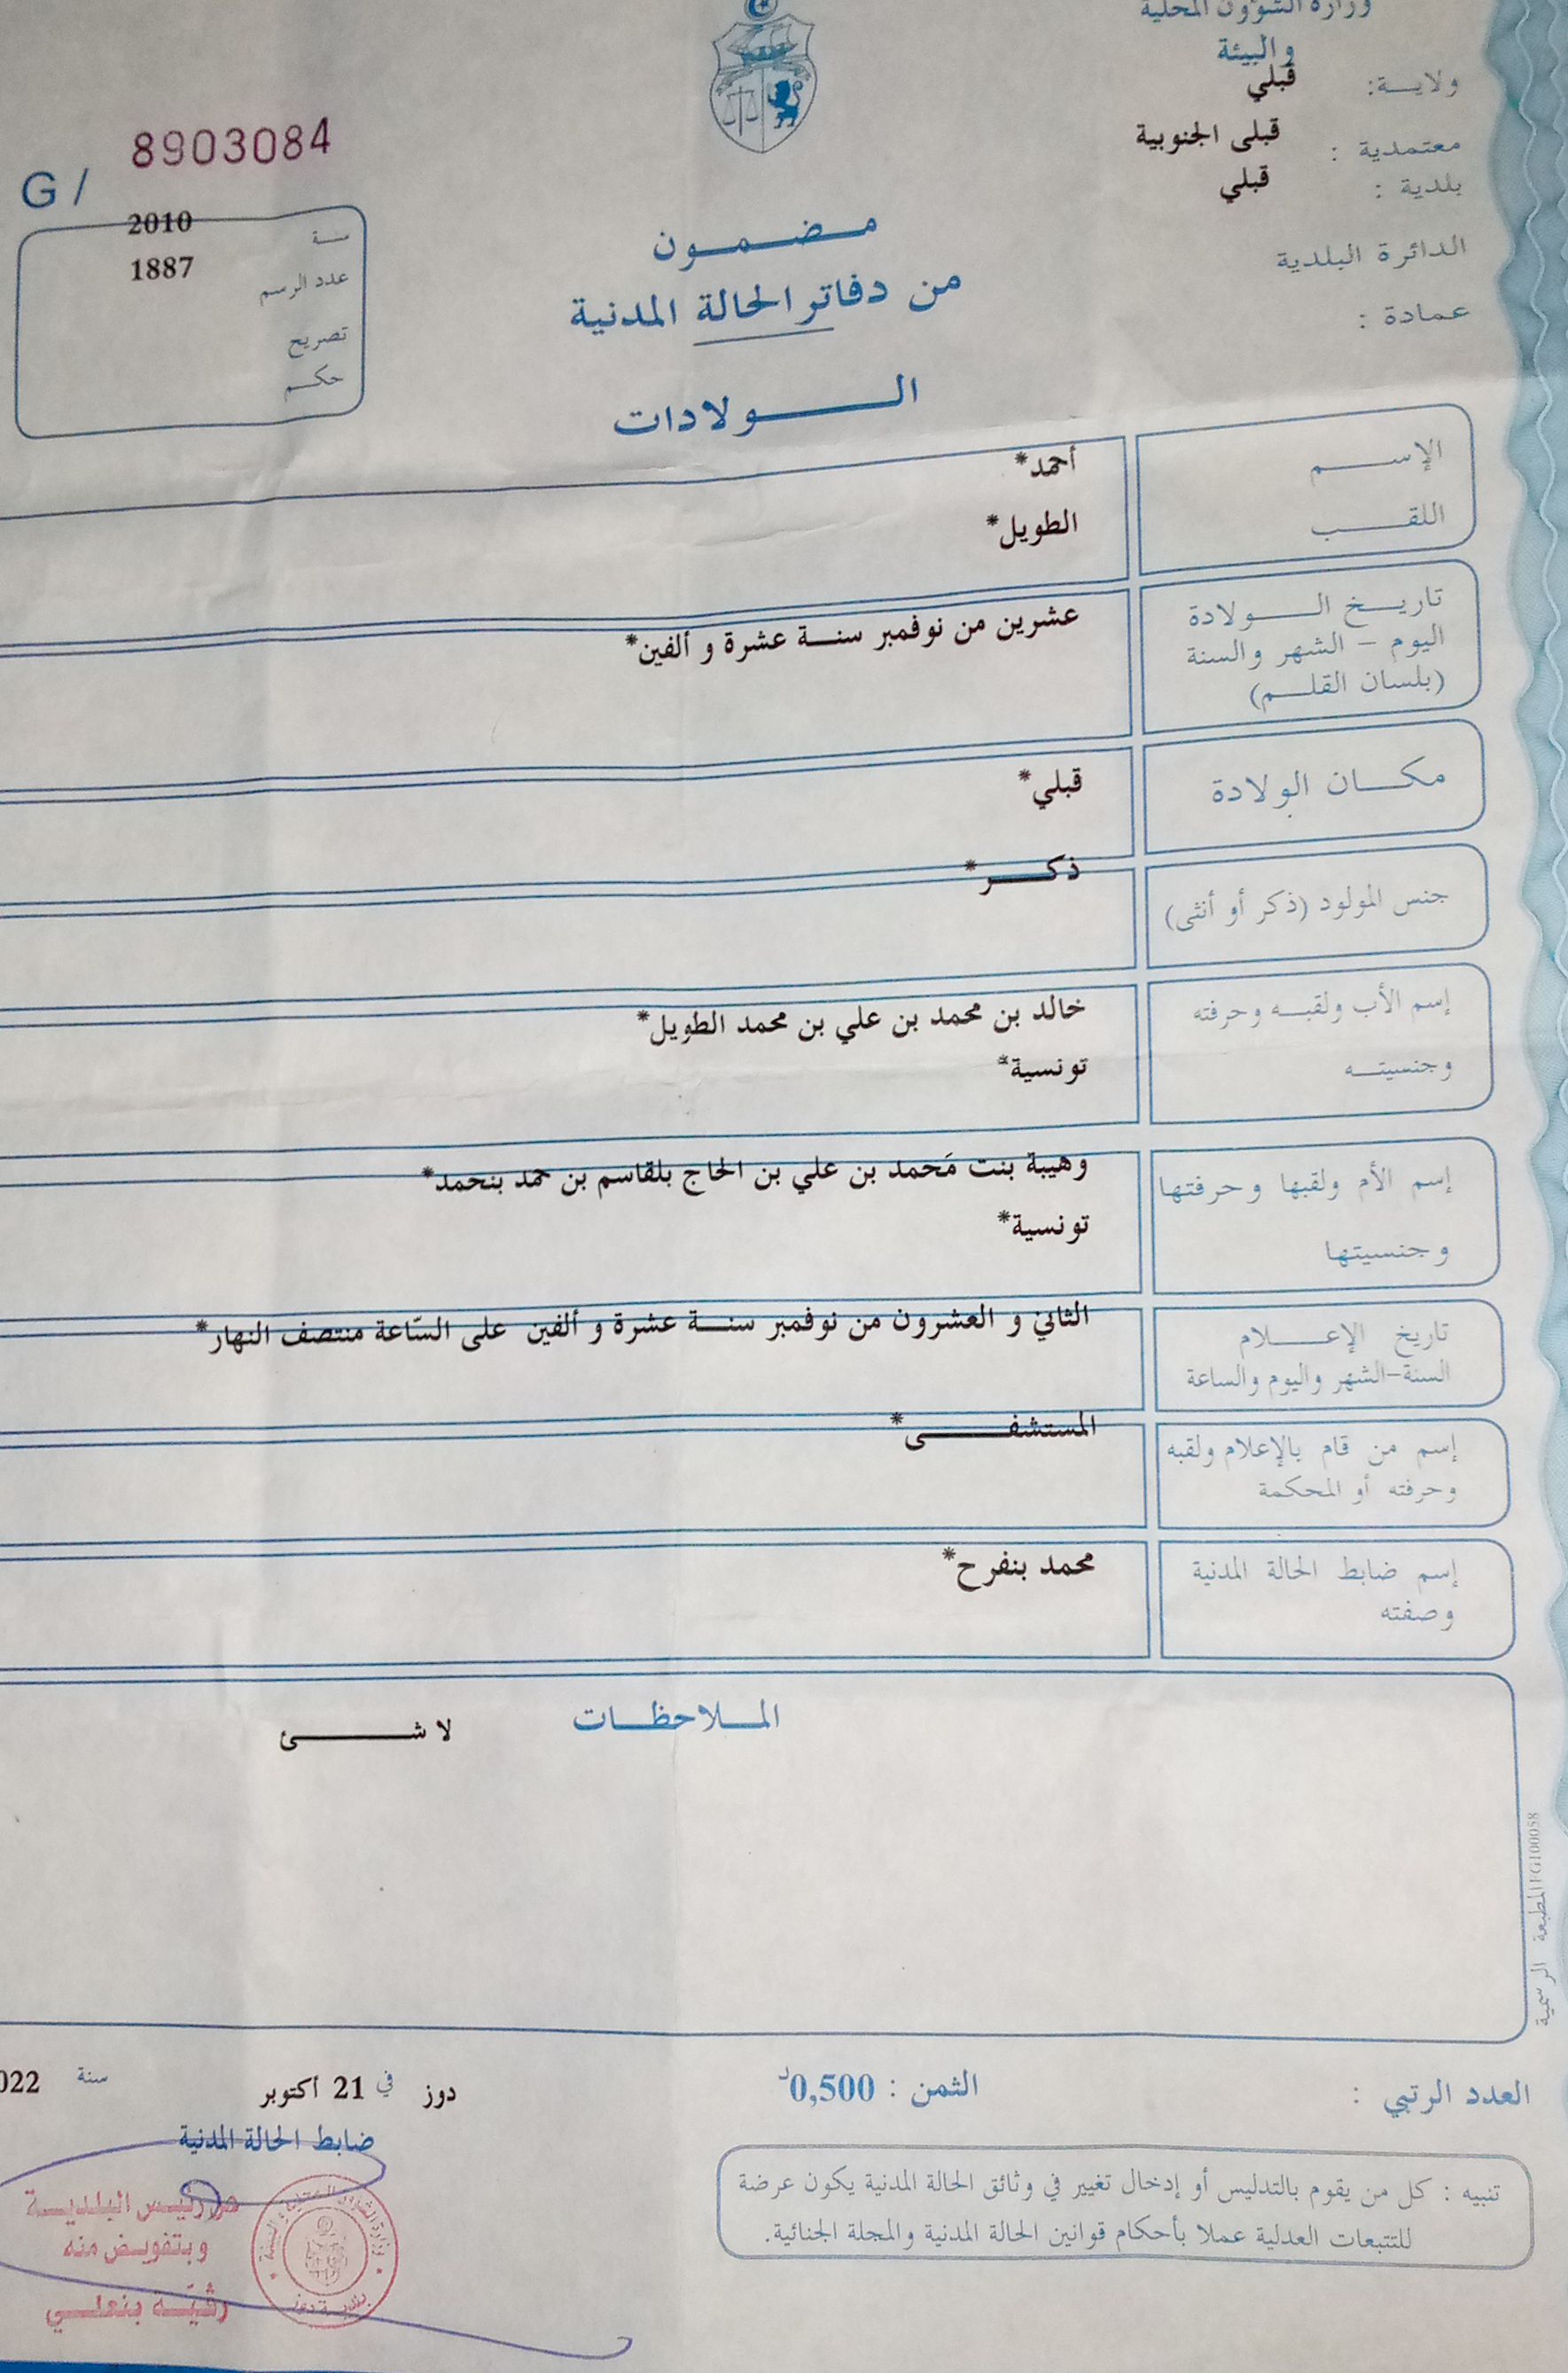 وزارة الشؤون المحلية
والبيئة
ولايــة: قبلي
معتمدية : قبلى الجنوبية
بلدية : قبلي
الدائرة البلدية
عمادة :
G / 8903084
سنة 2010
عدد الرسم 1887
تصريح
حكم
مـضـمـون
من دفاتر الحالة المدنية
الـولادات
الإســم أحمد*
اللقــب الطويل*
تاريـخ الـولادة
اليوم - الشهر والسنة
(بلسان القلـم)
عشرين من نوفمبر سنـة عشرة و ألفين*
مكـان الولادة قبلي*
جنس المولود (ذكر أو أنثى) ذكـر*
إسم الأب ولقبـه وحرفته
وجنسيتـه
خالد بن محمد بن علي بن محمد الطويل*
تونسية*
إسم الأم ولقبها وحرفتها
وجنسيتها
وهيبة بنت مَحمد بن علي بن الحاج بلقاسم بن حمد بنحمد*
تونسية*
تاريخ الإعـلام
السنة-الشهر واليوم والساعة
الثاني و العشرون من نوفمبر سنـة عشرة و ألفين على السّاعة منتصف النهار*
إسم من قام بالإعلام ولقبه
وحرفته أو المحكمة
المستشفـى*
إسم ضابط الحالة المدنية
وصفته
محمد بنفرح*
المـلاحظـات
لا شـئ
المطبعة الرسمية FG100058
العدد الرتبي :
الثمن : 0,500د
دوز في 21 أكتوبر سنة 022
ضابط الحالة المدنية
عن رئيس البلديـة
وبتفويض منه
بنعلـي
تنبيه : كل من يقوم بالتدليس أو إدخال تغيير في وثائق الحالة المدنية يكون عرضة
للتتبعات العدلية عملا بأحكام قوانين الحالة المدنية والمجلة الجنائية.